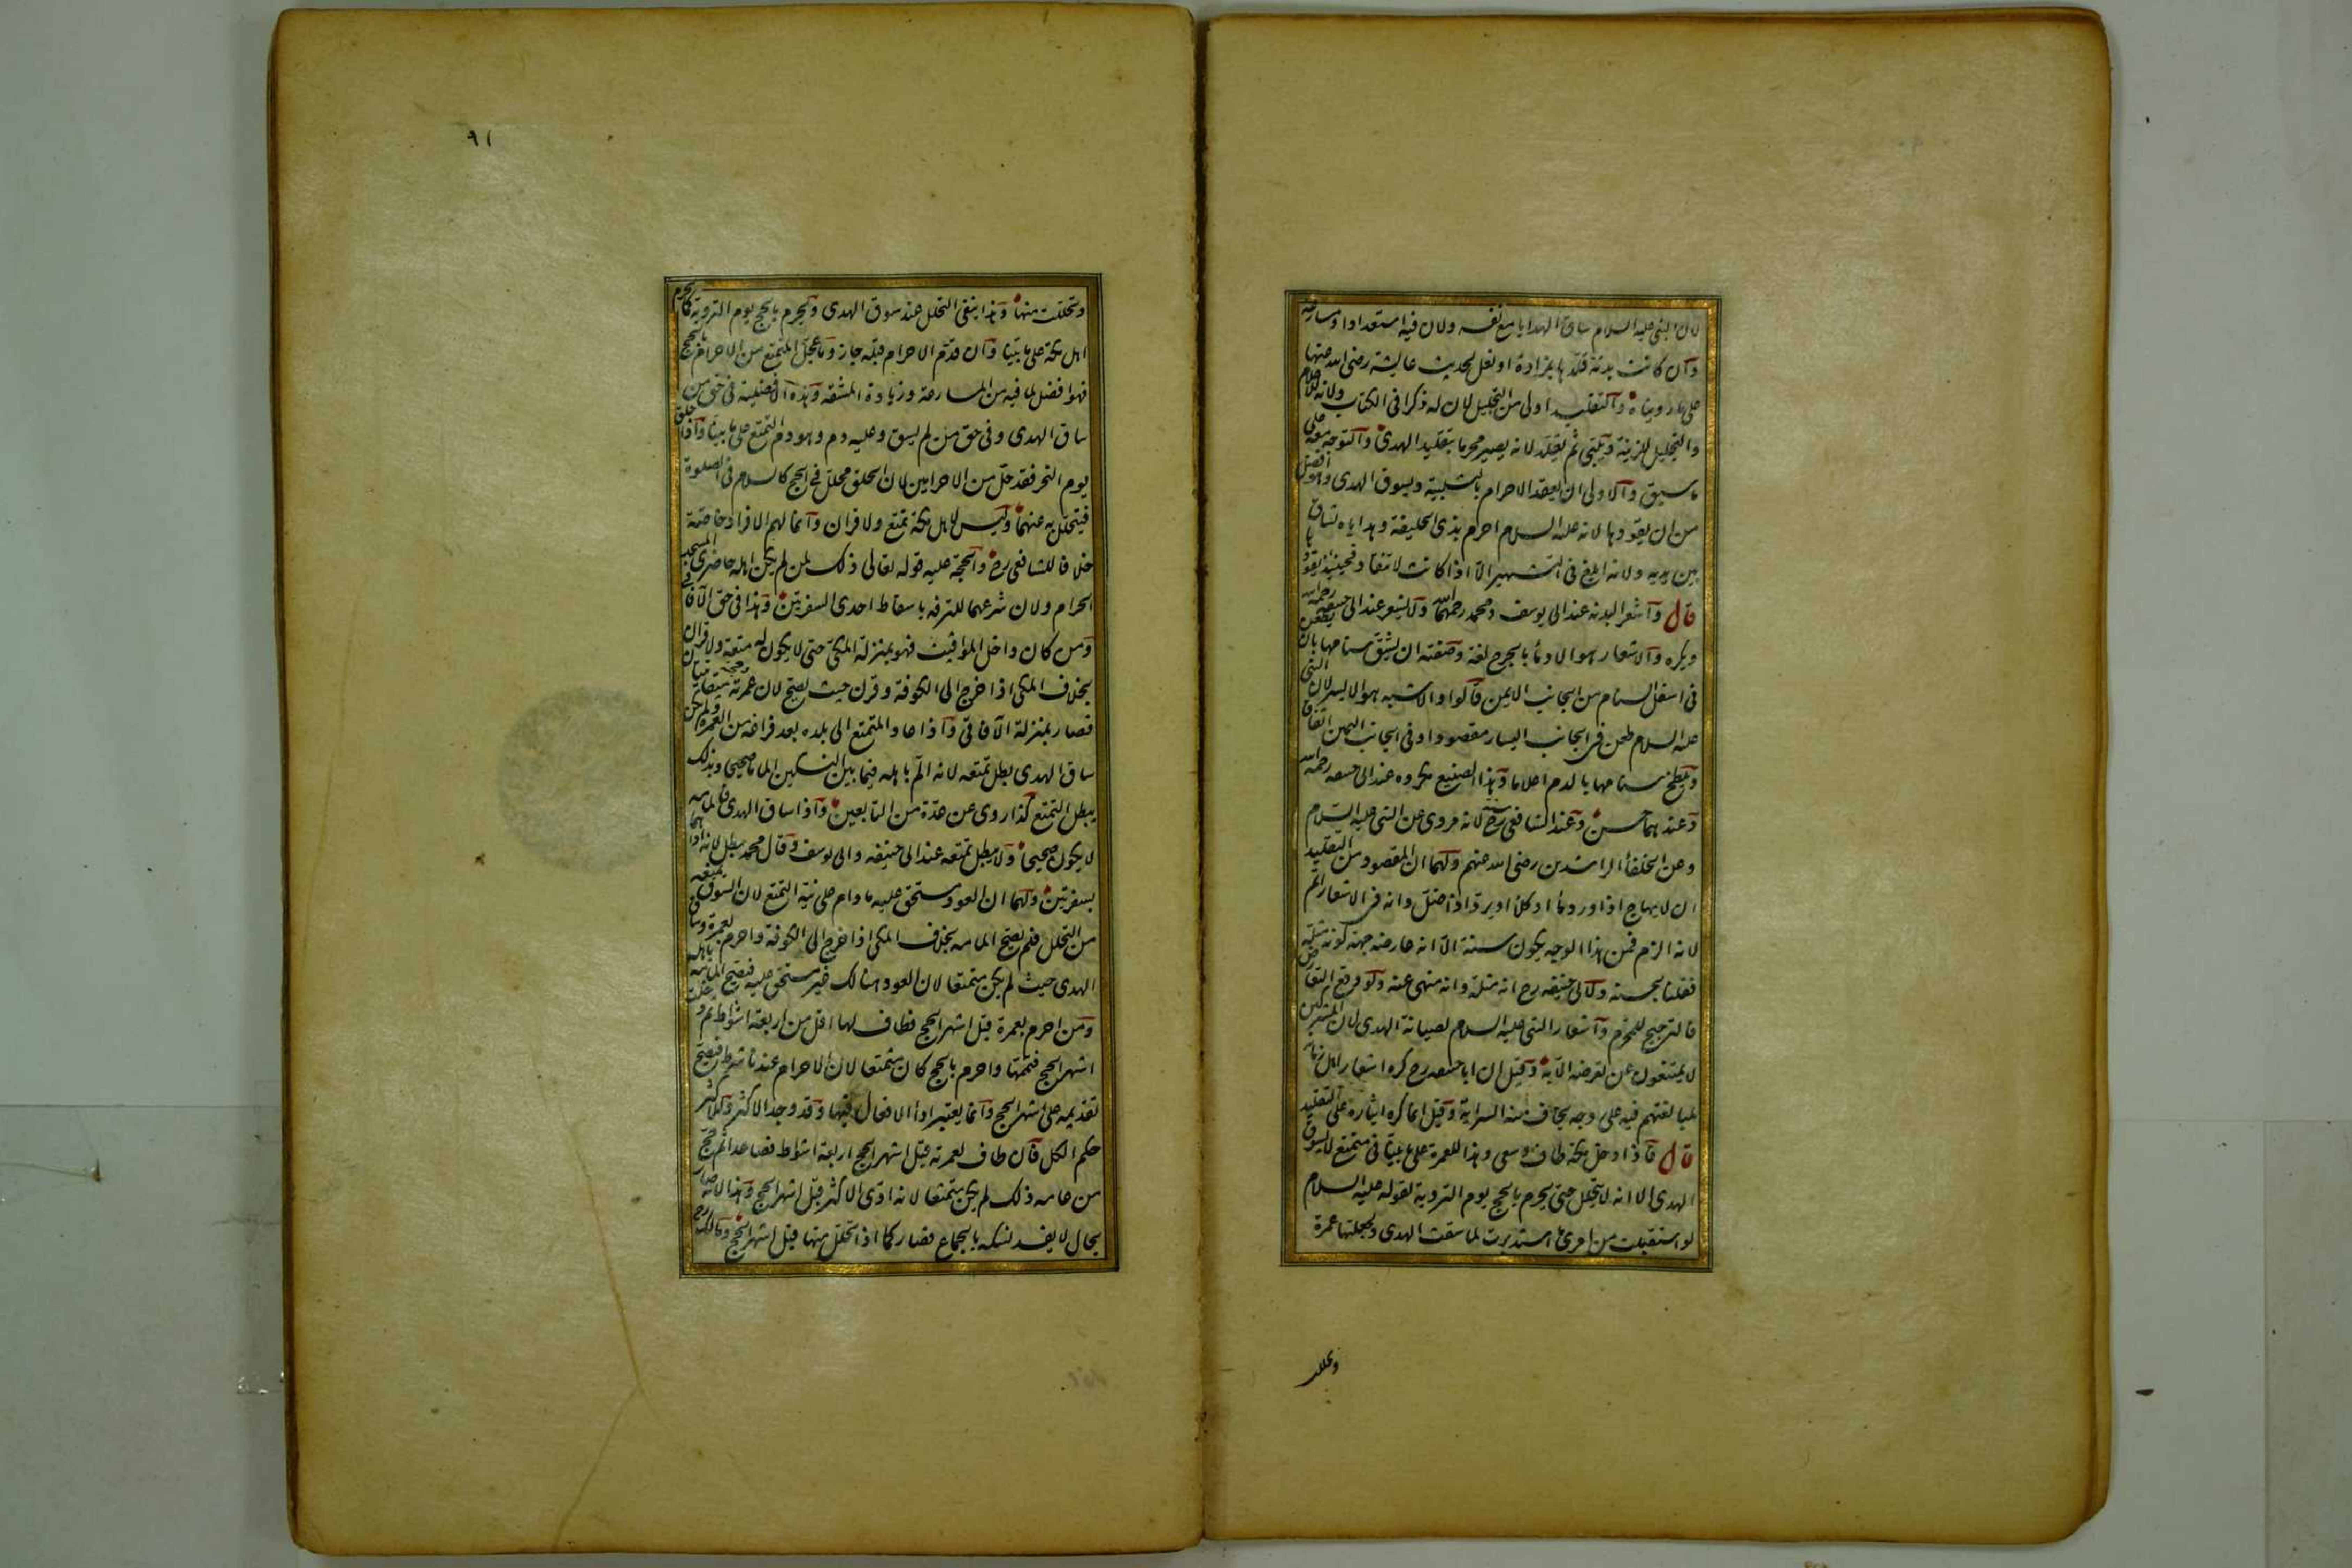 لان النبى عليه السلام ساق الهدايا مع نفسه ولان فيه استعدادا ومسارعة
وآن كانت بدنة قلدها بمزادة او نعل لحديث عايشة رضى الله عنها
على ما روينا ه وآلتقليد اولى من التجليل لان له ذكرا فى الكتاب ولانه للاعلام
والتجليل للزينة وَيلبى ثم يقلد لانه يصير محرما بتقليد الهدى وآلتوجه معه على
ما سبق وآلاولى ان يعقد الاحرام بالتلبية ويسوق الهدى وهو افضل
من ان يقودها لانه عليه السلام احرم بذى الحليفة وهداياه تساق
بين يديه ولانه ابلغ فى التشهير الّا اذا كانت لا تنقاد فحينئذ يقودها
قال وآشعر البدنة عند ابى يوسف ومحمد رحمهما الله ولا يشعر عند ابى حنيفة رحمه الله
ويكره وآلاشعار هو الادماء بالجرح لغة وصفته ان يشق سنامها بان يطعن
فى اسفل السنام من الجانب الايمن قالوا والاشبه هو الايسر لان النبى
عليه السلام طعن فى الجانب اليسار مقصودا وفى الجانب اليمين اتفاقا
ويلطخ سنامها بالدم اعلاما وهذا الصنيع مكروه عند ابى حنيفة رحمه الله
وعندهما حسن وعند الشافعى رح سنة لانه مروى عن النبى عليه السلام
وعن الخلفاء الراشدين رضى الله عنهم ولهما ان المقصود من التقليد
ان لا يهاج اذا ورد ماء او كلأ او يرد اذا ضل وانه فى الاشعار اتم
لانه الزم فمن هذا الوجه يكون سنة الّا انه عارضه جهة كونه مثلة
فقلنا بحسنه ولابى حنيفه رح انه مثلة وانه منهى عنه ولو وقع التعارض
فالترجيح للمحرم وآشعار النبى عليه السلام لصيانة الهدى لان المشركين
لا يمتنعون عن تعرضه الّا به وقيل ان ابا حنيفه رح كره اشعار اهل زمانه
لمبالغتهم فيه على وجه يخاف منه السراية وقيل انما كره ايثاره على التقليد
قال فآذا دخل مكة طاف وسعى وهذا للعمرة على ما بينا فى متمتع لا يسوق
الهدى الا انه لا يتحلل حتى يحرم بالحج يوم التروية لقوله عليه السلام
لو استقبلت من امرى ما استدبرت لما سقت الهدى ولجعلتها عمرة
وتحللت
٩١
وتحللت منها وهذا ينفى التحلل عند سوق الهدى ويحرم بالحج يوم التروية كما يحرم
اهل مكة على ما بينا وآن قدّم الاحرام قبله جاز وما عجل المتمتع من الاحرام بالحج
فهو افضل لما فيه من المسارعة وزيادة المشقة وهذه الافضلية فى حق من
ساق الهدى وفى حق من لم يسق وعليه دم وهو دم التمتع على ما بينا وآذا حلق
يوم النحر فقد حل من الاحرامين لان الحلق محلل فى الحج كالسلام فى الصلوة
فيتحلل به عنهما وليس لاهل مكة تمتع ولا قران وآنما لهم الافراد خاصة
خلافا للشافعى رح وآلحجة عليه قوله تعالى ذلك لمن لم يكن اهله حاضرى المسجد
الحرام ولان شرعهما للترفه باسقاط احدى السفرتين وهذا فى حق الآفاقى
ومن كان داخل المواقيت فهو بمنزلة المكى حتى لا يكون له متعة ولا قران
بخلاف المكى اذا خرج الى الكوفة وقرن حيث يصح لان عمرته وحجته ميقاتيتان
فصار بمنزلة الآفاقى وآذا عاد المتمتع الى بلده بعد فراغه من العمرة ولم يكن
ساق الهدى بطل تمتعه لانه المّ باهله فيما بين النسكين الماما صحيحا وبذلك
يبطل التمتع كذا روى عن عدة من التابعين وآذا ساق الهدى فالمامه
لا يكون صحيحا ولا يبطل تمتعه عند ابى حنيفه وابى يوسف وقال محمد يبطل لانه اداهما
بسفرتين ولهما ان العود مستحق عليه ما دام على نية التمتع لان السوق يمنعه
من التحلل فلم يصح المامه بخلاف المكى اذا خرج الى الكوفة واحرم بعمرة وساق
الهدى حيث لم يكن متمتعا لان العود هنالك غير مستحق عليه فيصح المامه باهله
ومن احرم بعمرة قبل اشهر الحج فطاف لها اقل من اربعة اشواط ثم دخلت
اشهر الحج فتممها واحرم بالحج كان متمتعا لان الاحرام عندنا شرط فيصح
تقديمه على اشهر الحج وآنما يعتبر اداء الافعال فيها وقد وجد الاكثر وللاكثر
حكم الكل فآن طاف لعمرته قبل اشهر الحج اربعة اشواط فصاعدا ثم حج
من عامه ذلك لم يكن متمتعا لانه ادى الاكثر قبل اشهر الحج وهذا لانه صار
بحال لا يفسد نسكه بالجماع فصار كما اذا تحلل منها قبل اشهر الحج ومالك رح